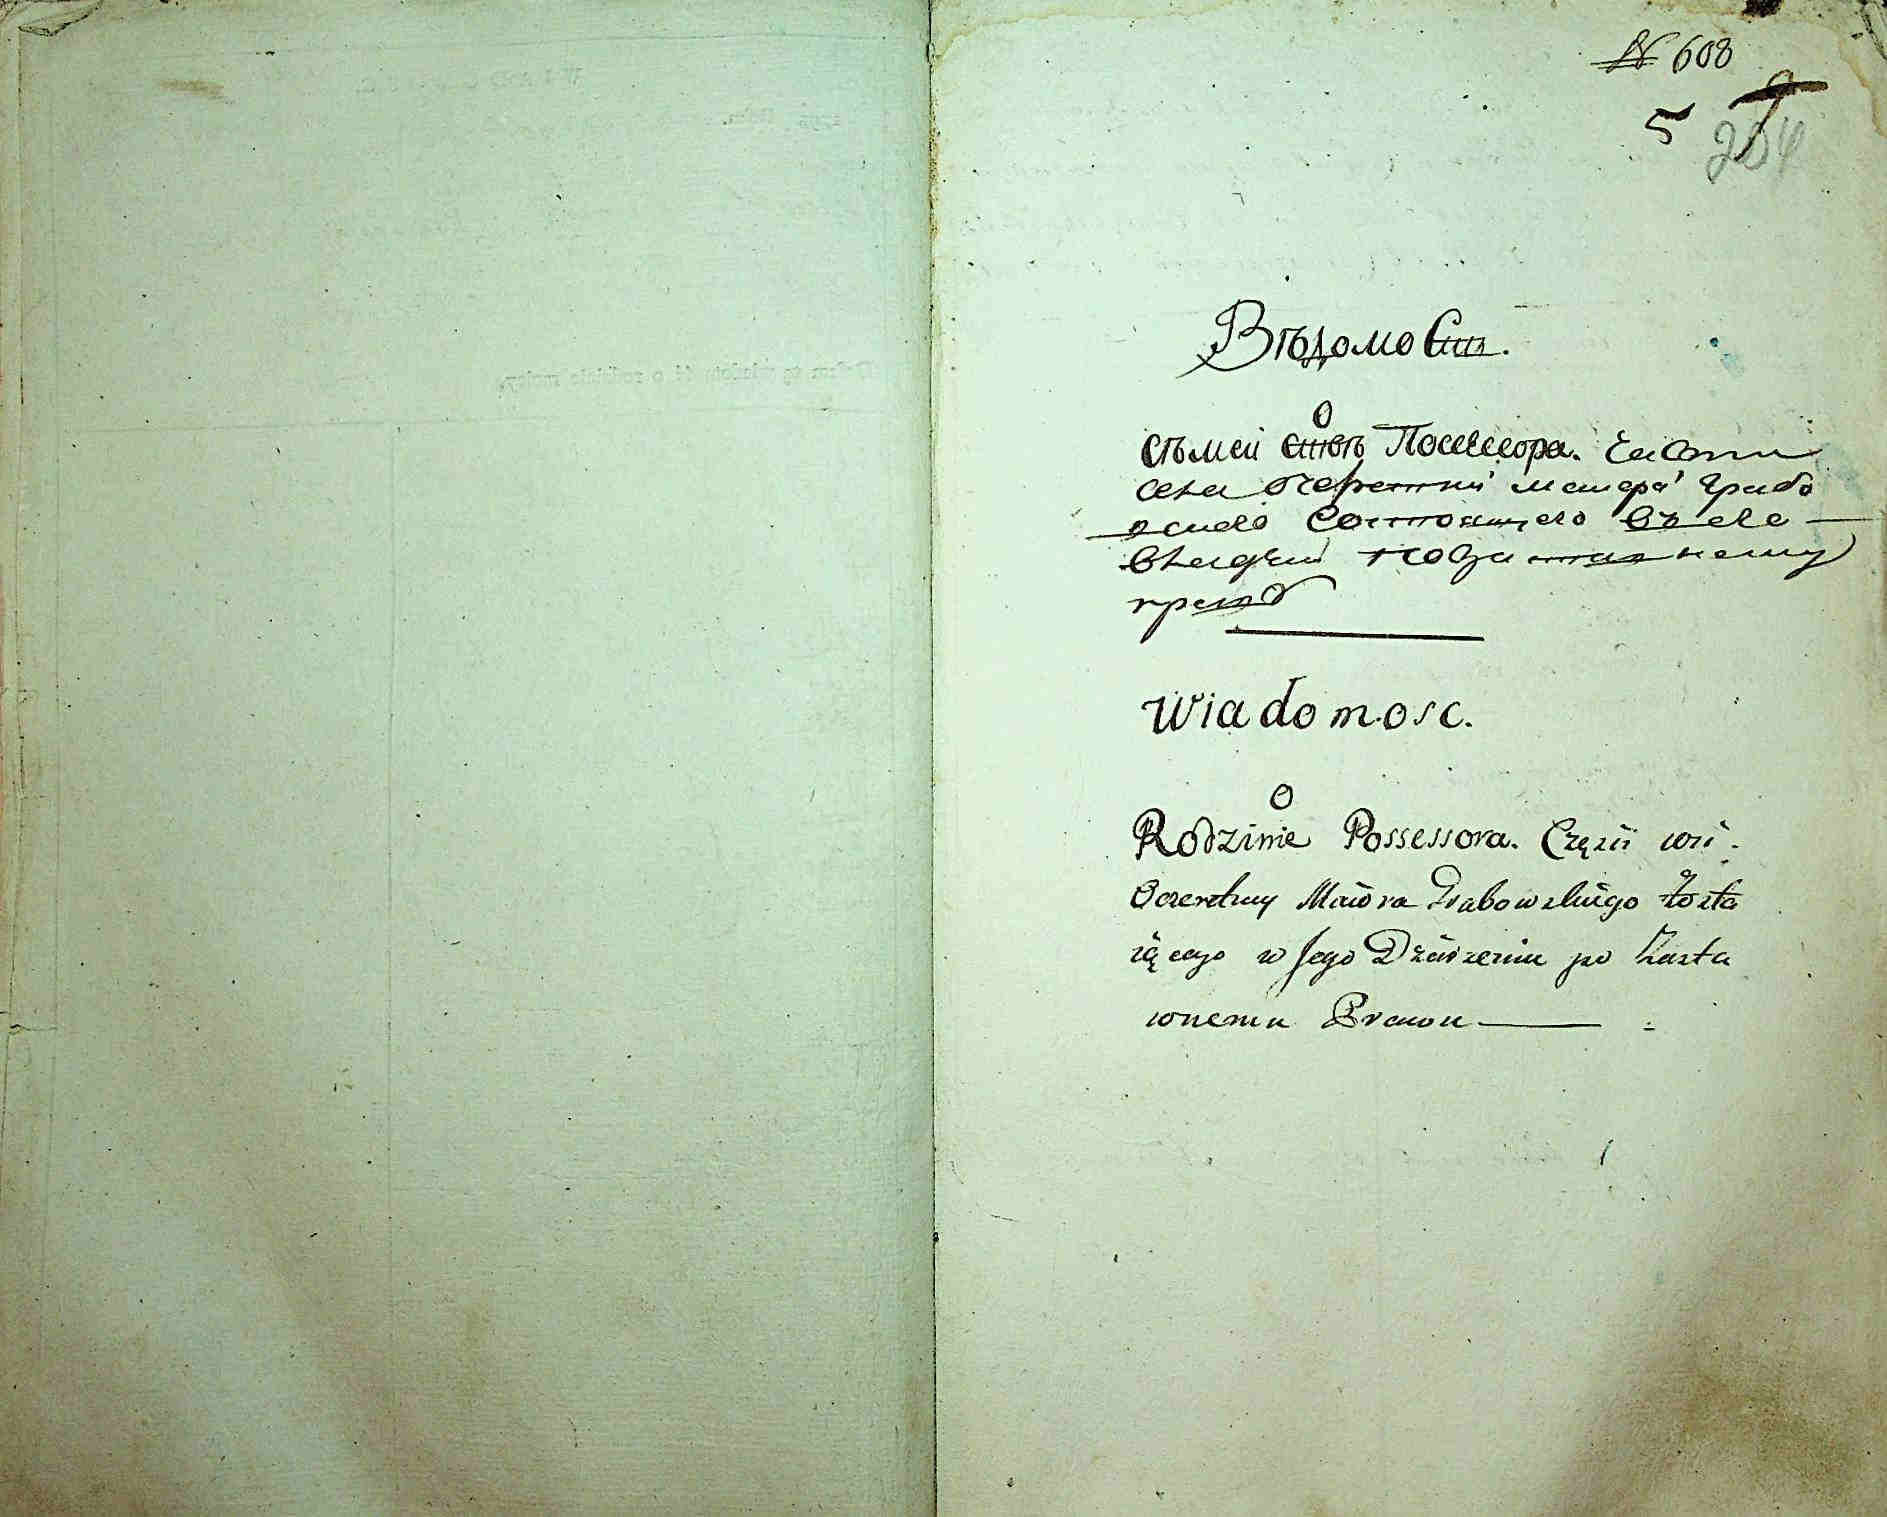 № 608
5
204
Вѣдомость.
О
сѣмей ствѣ Посессора. Части
села Очеретни маиора Грабо
вскаго состоящаго въ его
владѣнии по заставному
праву
Wiadomosc.
O
Rodzinie Possessora. Częsci wsi
Oczeretney Maiora Grabowskiego Zosta
iącego w Jego Dzierzeniu po Zasta
wnemu Prawu